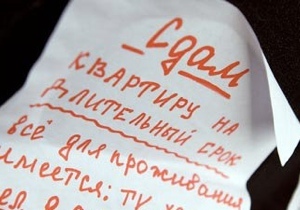 Сдам
КВАРТИРУ НА
ДЛИТЕЛЬНЫЙ СРОК
всё для проживания
имеется: